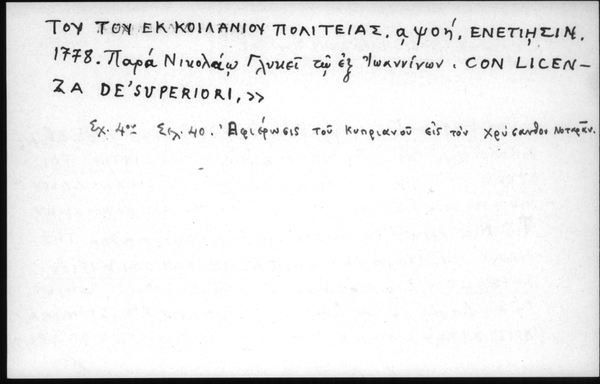 ΤΟΥ ΤΟΥ ΕΚ ΚΟΙΛΑΝΙΟΥ ΠΟΛΙΤΕΙΑΣ. αψοή, ΕΝΕΤΙΗΣΙΝ.
1778. Παρά Νικολάῳ Γλυκεῖ τῷ ἐξ Ἰωαννίνων. CON LICEN-
ZA DE'SUPERIORI, >>
Σχ. 4ον Σελ. 40. Ἀφιέρωσις τοῦ Κυπριανοῦ εἰς τὸν Χρύσανθον Νοταρᾶν.